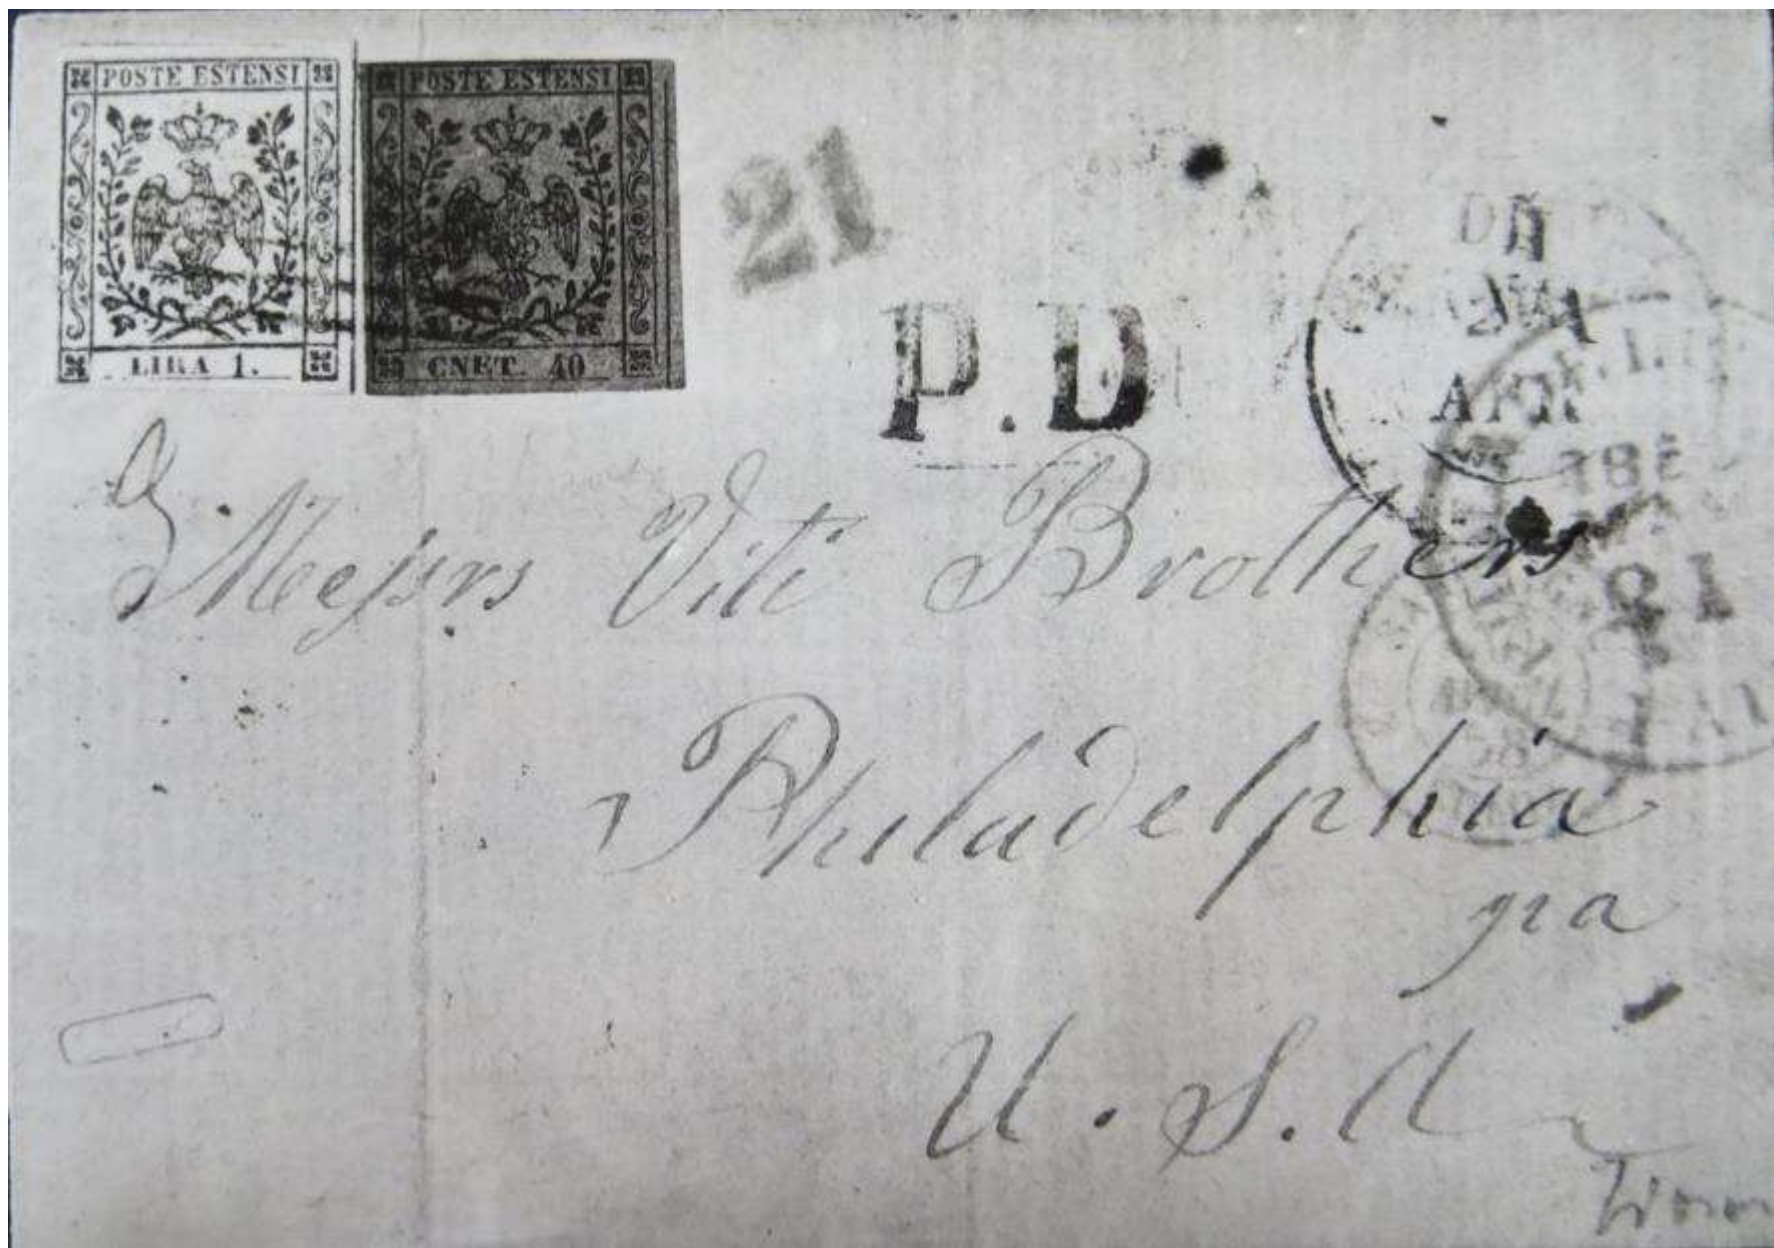 POSTE ESTENSI
LIRA 1.
POSTE ESTENSI
CNET. 40
21
P.D
DA
Messrs Viti Brothers
21
Philadelphia
pa
U. S. A